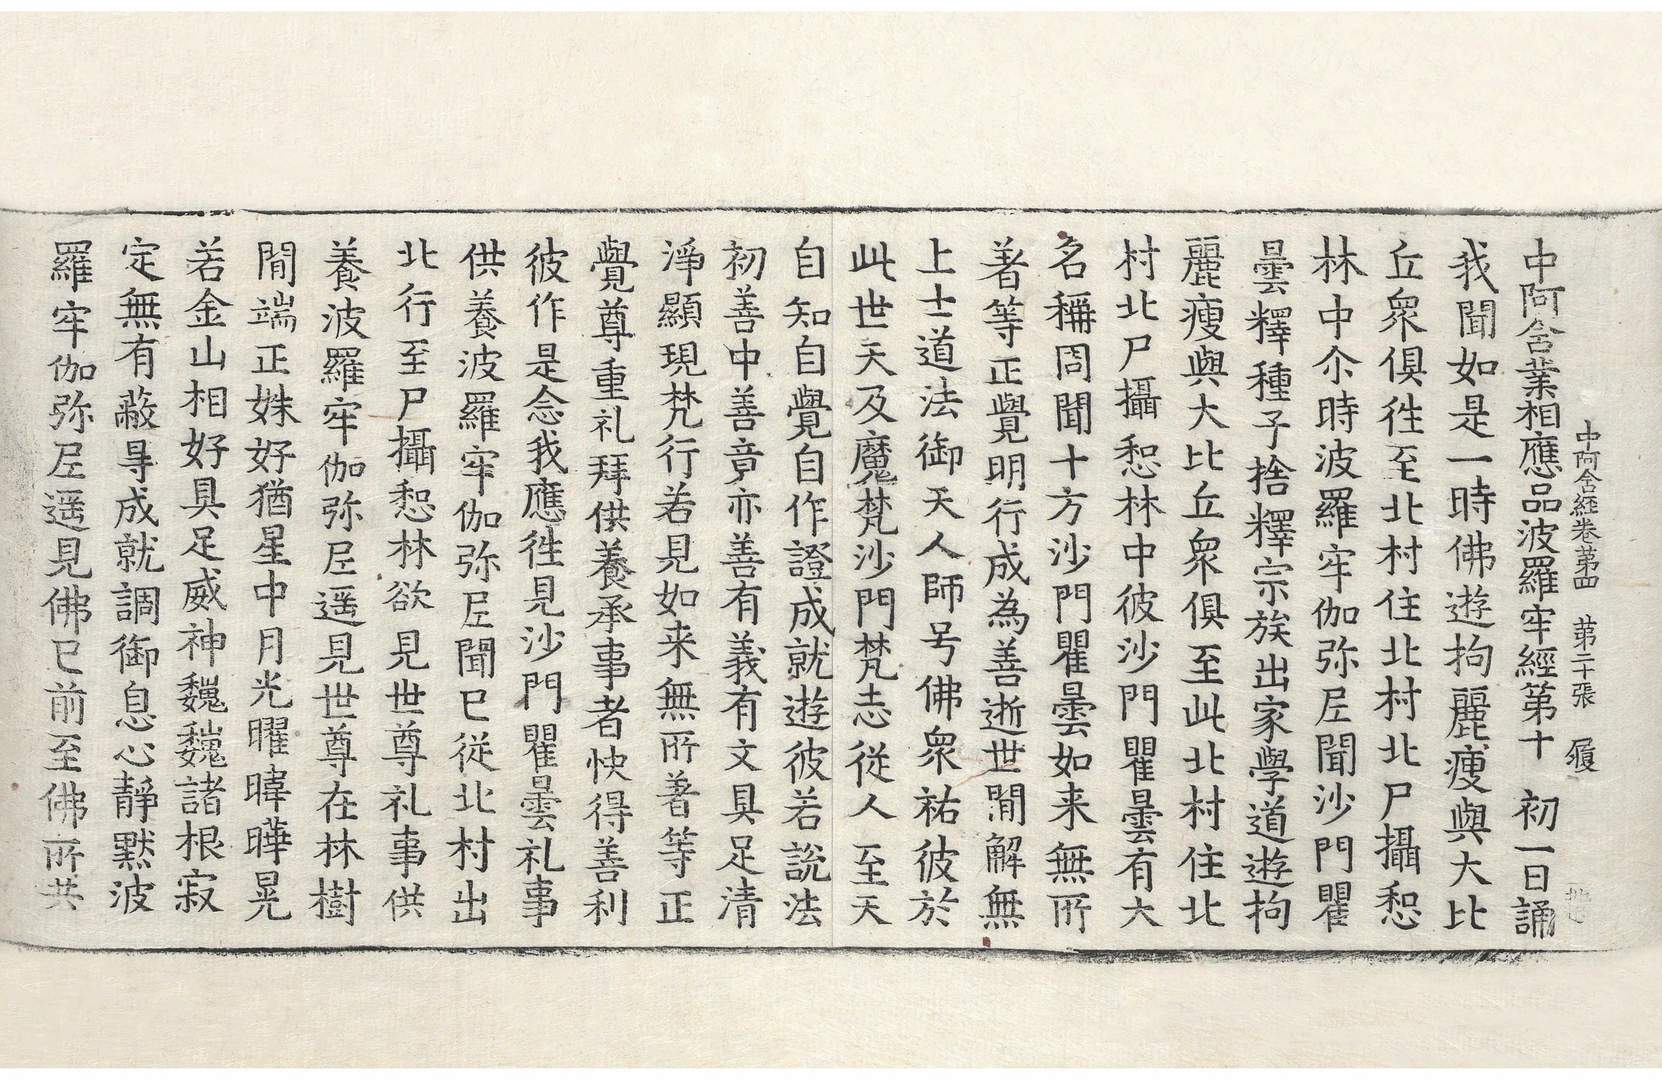 中阿含経卷苐四　苐二十張　履
中阿含業相應品波羅牢經第十　初一日誦
我聞如是一時佛遊拘麗瘦與大比
丘衆俱徃至北村住北村北尸攝惒
林中尒時波羅牢伽弥㞐聞沙門瞿
曇釋種子捨釋宗族出家學道遊拘
麗瘦與大比丘衆俱至此北村住北
村北尸攝惒林中彼沙門瞿曇有大
名稱周聞十方沙門瞿曇如来無所
著等正覺明行成為善逝世閒解無
上士道法御天人師号佛衆祐彼於
此世天及魔梵沙門梵志從人至天
自知自覺自作證成就遊彼若說法
初善中善竟亦善有義有文具足清
淨顯現梵行若見如来無所著等正
覺尊重礼拜供養承事者快得善利
彼作是念我應徃見沙門瞿曇礼事
供養波羅牢伽弥㞐聞已從北村出
北行至尸攝惒林欲見世尊礼事供
養波羅牢伽弥㞐遥見世尊在林樹
閒端正姝好猶星中月光曜暐曄晃
若金山相好具足威神巍巍諸根寂
定無有蔽㝵成就調御息心靜默波
羅牢伽弥㞐遥見佛已前至佛所共